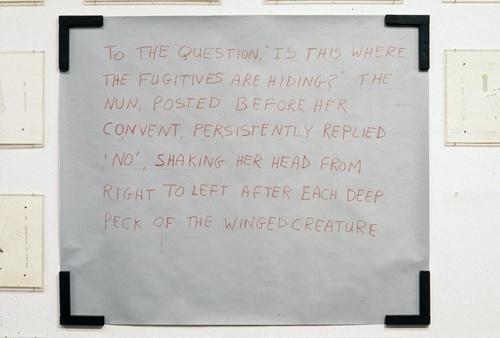 TO THE QUESTION, 'IS THIS WHERE
THE FUGITIVES ARE HIDING?' THE
NUN, POSTED BEFORE HER
CONVENT, PERSISTENTLY REPLIED
'NO', SHAKING HER HEAD FROM
RIGHT TO LEFT AFTER EACH DEEP
PECK OF THE WINGED CREATURE